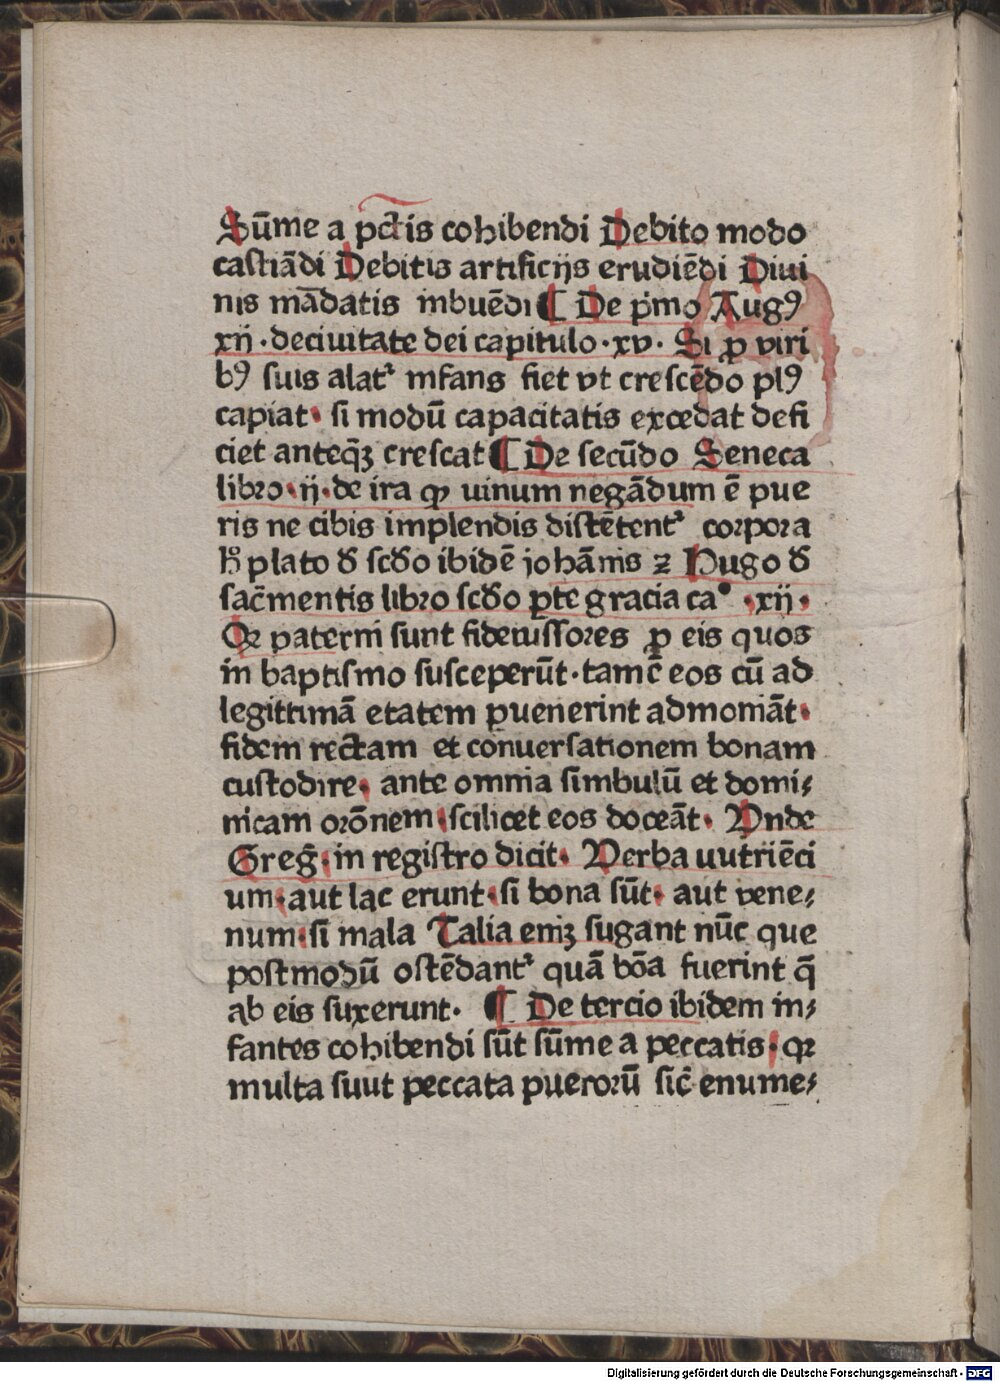 Sūme a pctīs cohibendi Debito modo
castiādi Debitis artificijs erudiēdi Diui
nis mādatis inbuēdi ¶ De pͥmo Augꝰ
xij · deciuitate dei capitulo · xv · Si ꝓ viri
bꝰ suis alatᷣ infans fiet vt crescēdo plꝰ
capiat · si modū capacitatis excedat defi
ciet anteqꝫ crescat ¶ De secūdo Seneca
libro · ij · de ira ꝙ uinum negādum ē pue
ris ne cibis implendis distētentᷣ corpora
hͦ plato ꝺ scꝺo ibidē johānis ⁊ Hugo ꝺ
sac̄mentis libro scꝺo ꝑte gracia caͦ · xij ·
Qꝛ paterni sunt fideiussores ꝓ eis quos
in baptismo susceperūt · tamē eos cū ad
legittimā etatem ꝑuenerint admoniāt ·
fidem rectam et conuersationem bonam
custodire · ante omnia simbulū et domi⸗
nicam orōnem · scilicet eos doceāt · Vnde
Greḡ · in registro dicit · Verba uutriēci
um · aut lac erunt · si bona sūt · aut vene⸗
num · si mala Talia enīꝫ sugant nūc que
postmodū ostēdantᷣ quā bōa fuerint q̄
ab eis suxerunt · ¶ De tercio ibidem in⸗
fantes cohibendi sūt sūme a peccatis · qꝛ
multa suut peccata puerorū sic̄ enume⸗
Digitalisierung gefördert durch die Deutsche Forschungsgemeinschaft - DFG